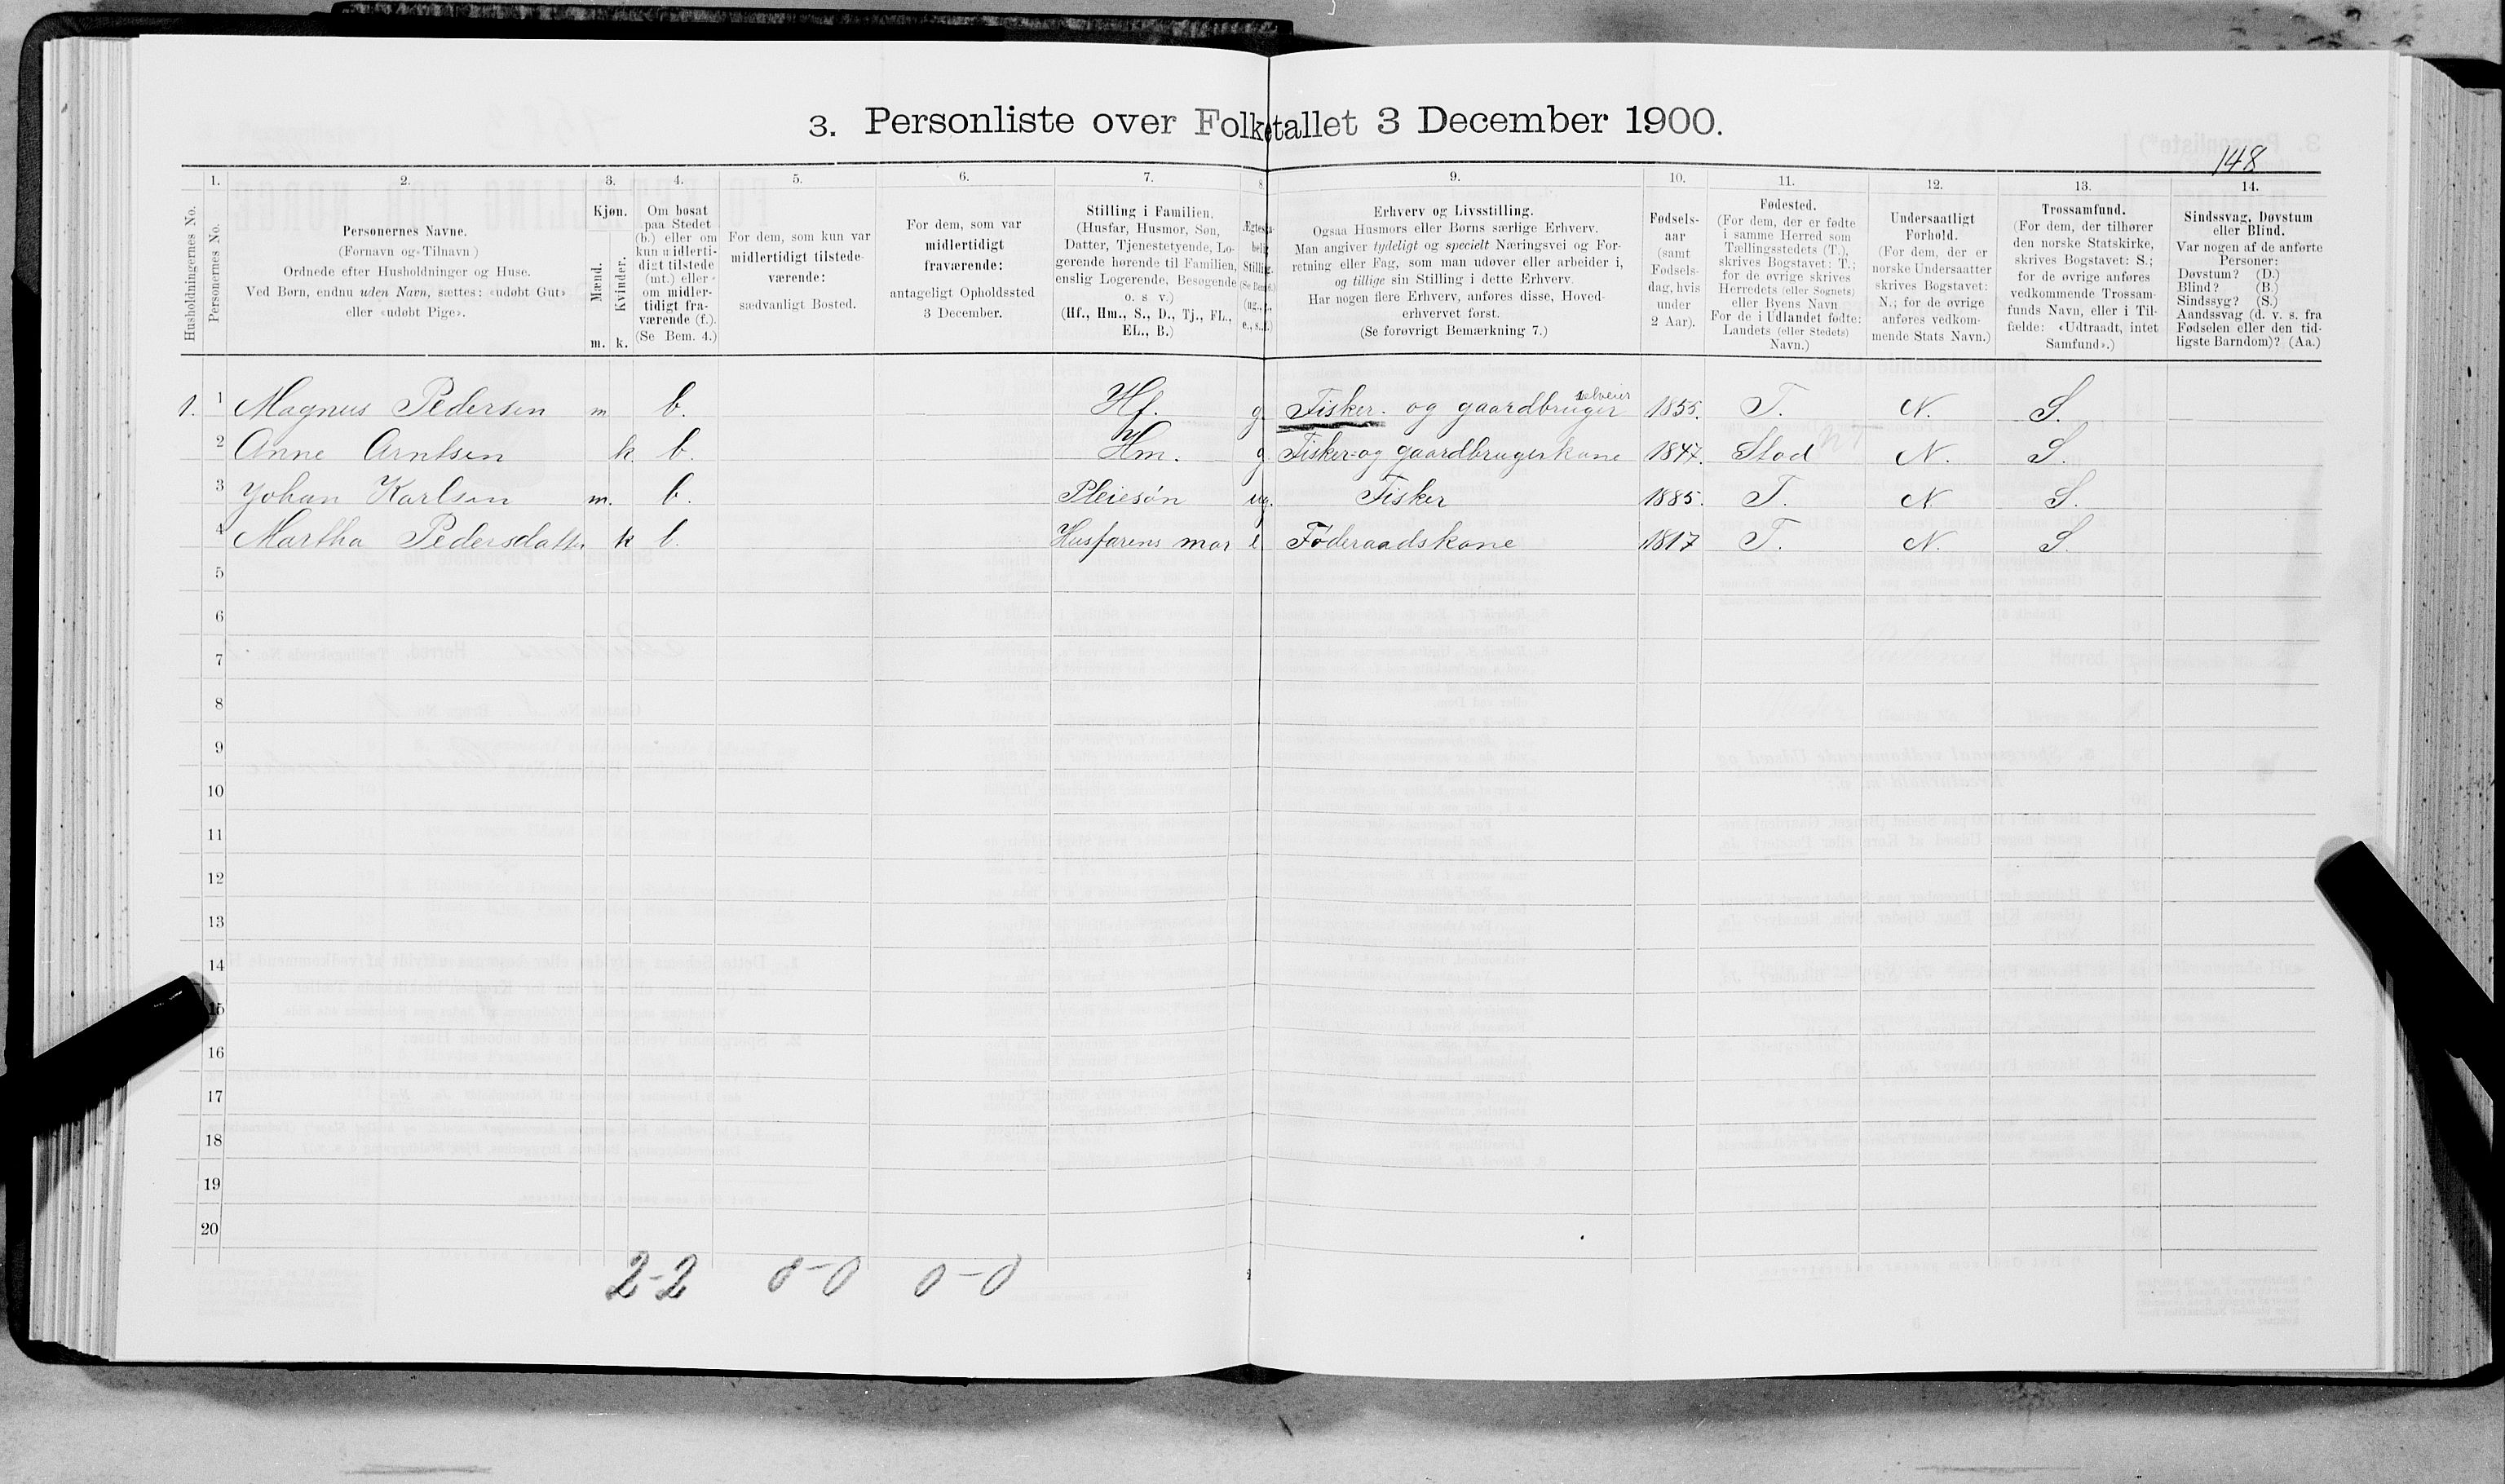 3. Personliste over Folketallet 3 December 1900.
148
1. 2. 3. 4. 5. 6. 7. 8 9. 10. 11. 12. 13. 14.
Husholdningernes No.
Personernes No.
Personernes Navne.
(Fornavn og Tilnavn )
Ordnede efter Husholdninger og Huse.
Ved Børn, endnu uden Navn, sættes: «udøbt Gut»
eller «udøbt Pige».
Kjøn.
Mænd.
Kvinder.
m. k.
Om bosat
paa Stedet
(b.) eller om
kun midlerti-
digt tilstede
(mt.) eller
om midler-
tidigt fra-
værende (f.).
(Se Bem. 4.)
For dem, som kun var
midlertidigt tilstede-
værende:
sædvanligt Bosted.
For dem, som var
midlertidigt
fraværende:
antageligt Opholdssted
3 December.
Stilling i Familien.
(Husfar, Husmor, Søn,
Datter, Tjenestetyende, Lo-
gerende hørende til Familien,
enslig Logerende, Besøgende
o. s v.)
(Hf., Hm., S., D., Tj., FL.,
EL., B.)
Ægteska-
belig
Stilling.
(Se Bem. 6.)
(ug., g.,
e., s., f.)
Erhverv og Livsstilling.
Ogsaa Husmors eller Børns særlige Erhverv.
Man angiver tydeligt og specielt Næringsvei og For-
retning eller Fag, som man udøver eller arbeider i,
og tillige sin Stilling i dette Erhverv.
Har nogen flere Erhverv, anføres disse, Hoved-
erhvervet først.
(Se forøvrigt Bemærkning 7.)
Fødsels-
aar
(samt
Fødsels-
dag, hvis
under
2 Aar).
Fødested.
(For dem, der er fødte
i samme Herred som
Tællingsstedets (T.),
skrives Bogstavet: T.;
for de øvrige skrives
Herredets (eller Sognets)
eller Byens Navn
For de i Udlandet fødte:
Landets (eller Stedets)
Navn.)
Undersaatligt
Forhold.
(For dem, der er
norske Undersaatter
skrives Bogstavet:
N.; for de øvrige
anføres vedkom-
mende Stats Navn.)
Trossamfund.
(For dem, der tilhører
den norske Statskirke,
skrives Bogstavet: S.;
for de øvrige anføres
vedkommende Trossam-
funds Navn, eller i Til-
fælde: «Udtraadt, intet
Samfund».)
Sindssvag, Døvstum
eller Blind.
Var nogen af de anførte
Personer:
Døvstum? (D.)
Blind? (B.)
Sindssyg? (S.)
Aandssvag (d. v. s. fra
Fødselen eller den tid-
ligste Barndom)? (Aa.)
1. 1 Magnus Pedersen m b. Hf. g Fisker. og gaardbruger selveier 1855. T. N. S.
2 Anne Arntsen k b. Hm. g Fisker= og gaardbrugerkone 1847. Stod NT N. S.
3 Johan Karlsen m. b. Pleiesøn ug. Fisker 1885. T. N. S.
4 Martha Pedersdatter k b. Husfarens mor e Føderaadskone 1817 T. N. S.
5
6
7
8
9
10
11
12
13
14
15
16
17
18
19
20
2-2 0-0 0-0